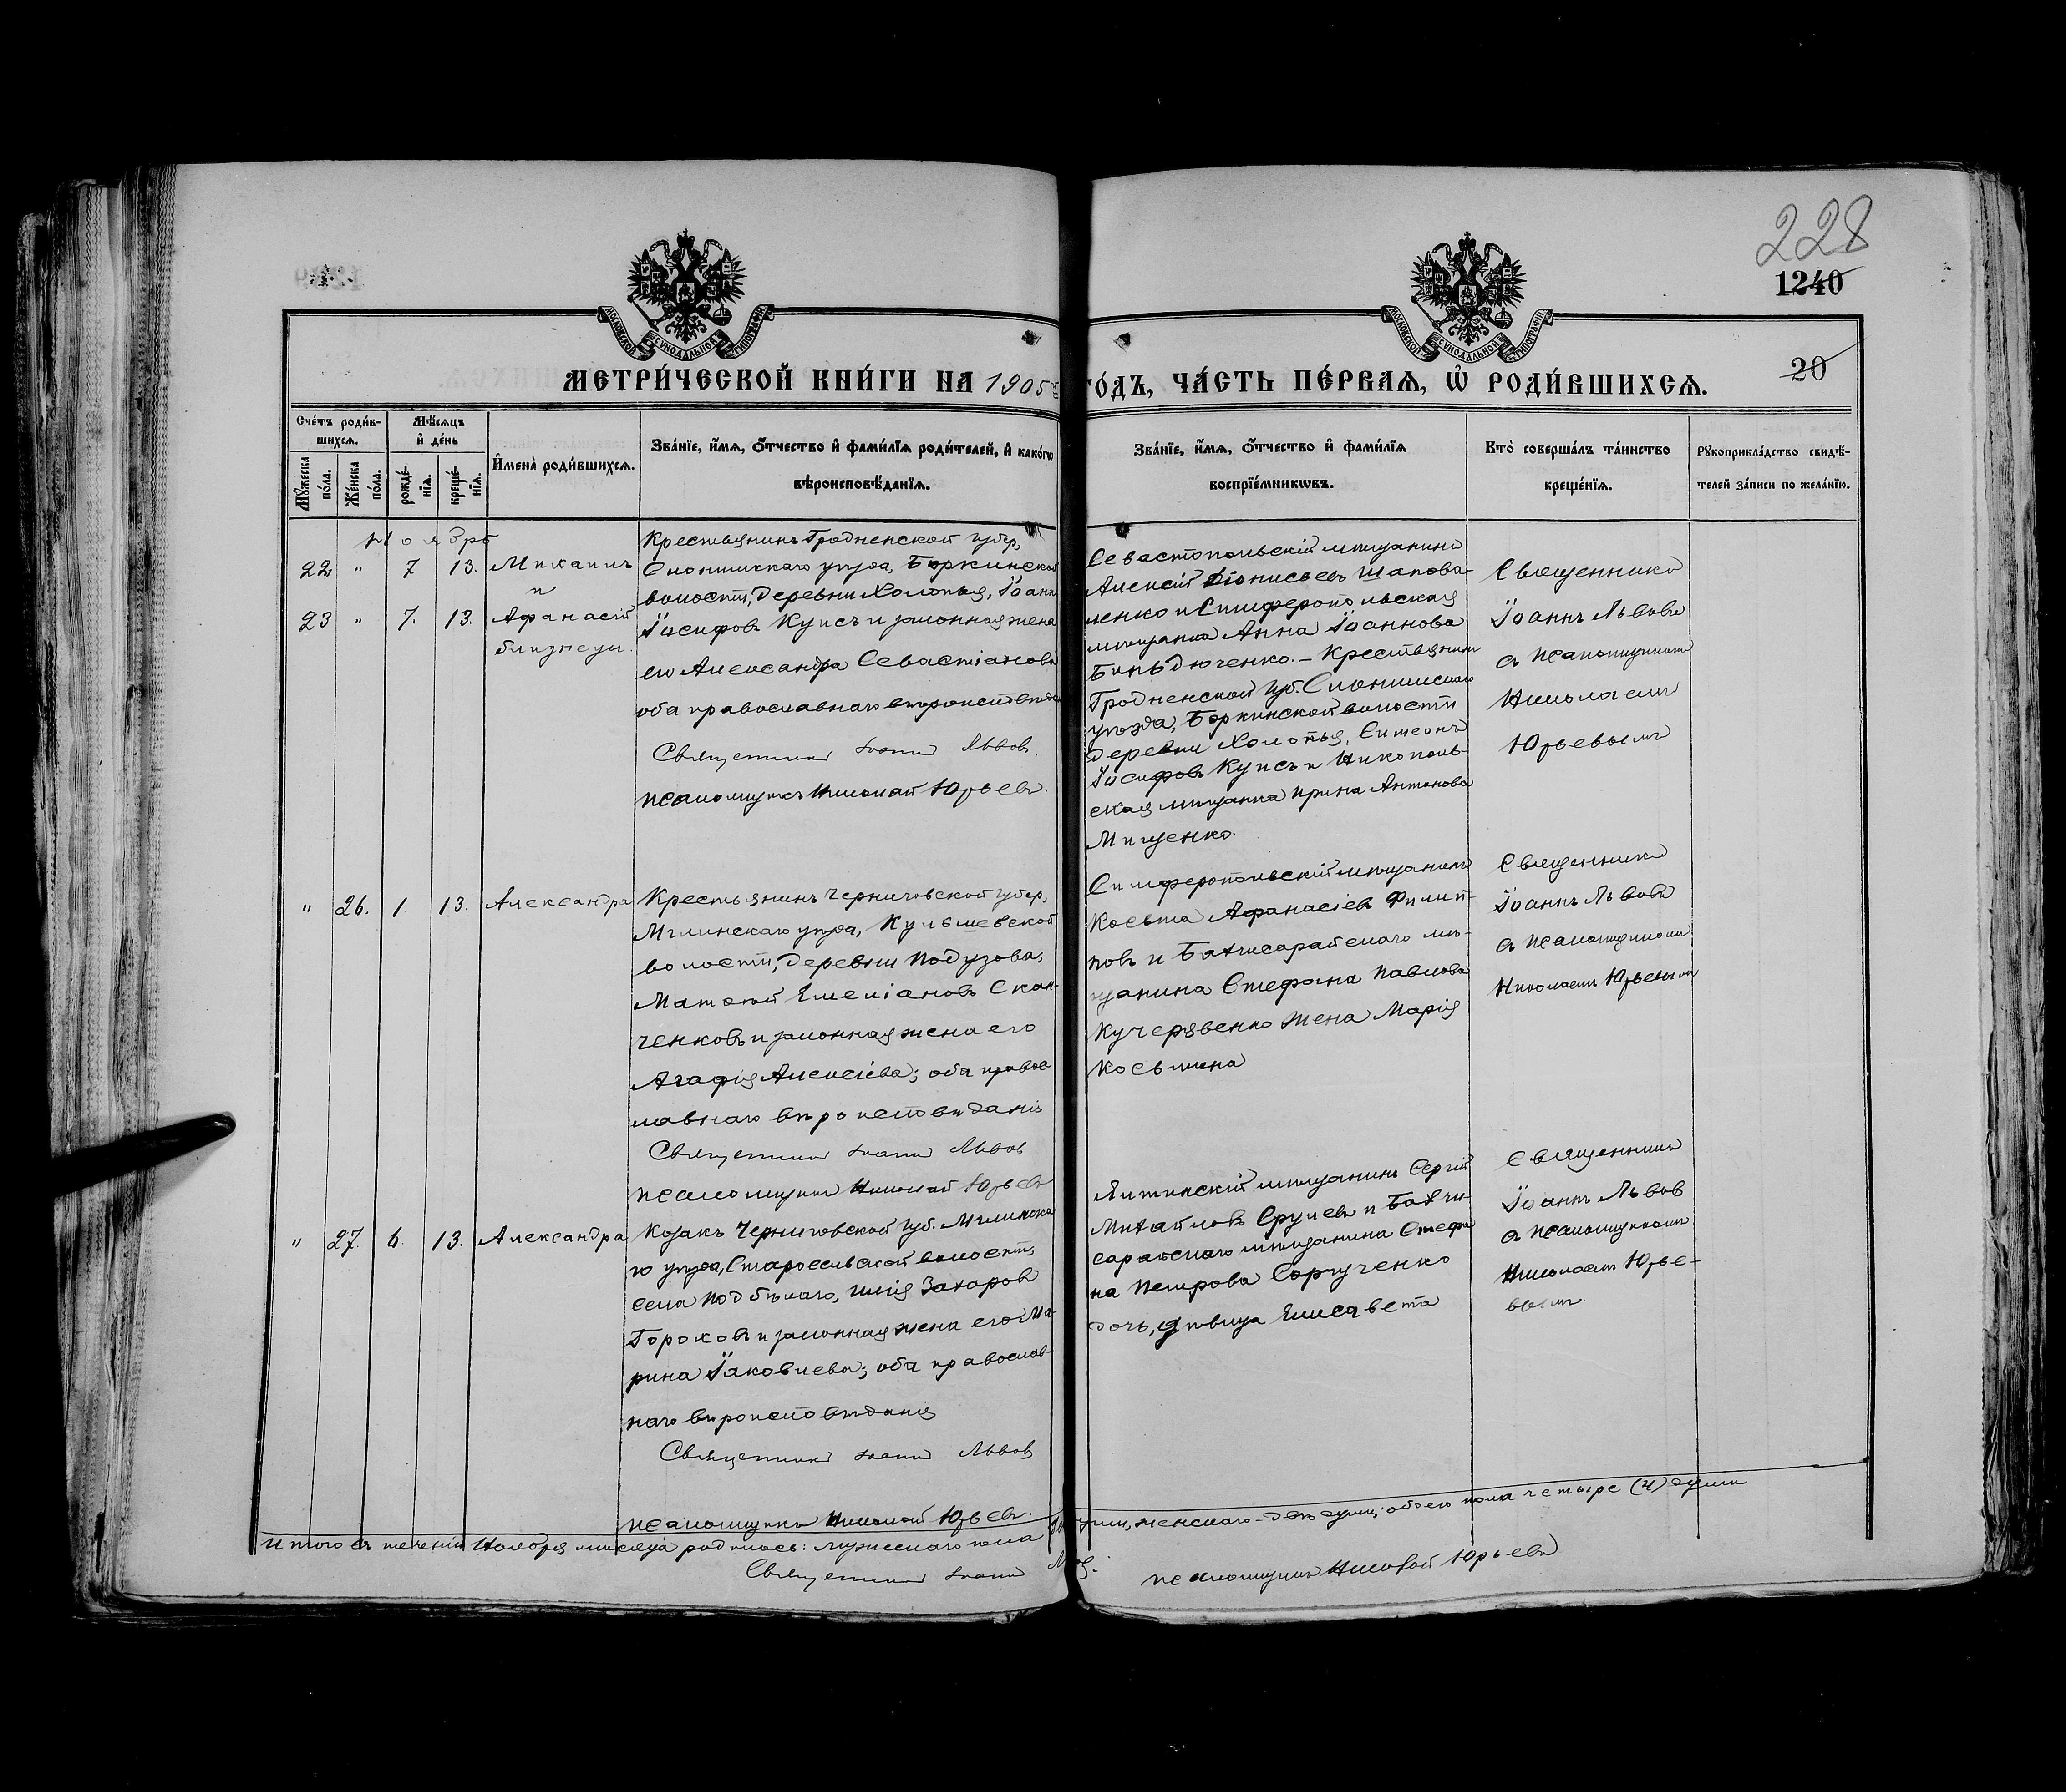 228
1240
20
МОСКОВСКОЙ СѴНОДАЛЬНОЙ ТИПОГРАФІИ
МОСКОВСКОЙ СѴНОДАЛЬНОЙ ТИПОГРАФІИ
МЕТРИ́ЧЕСКОЙ КНИ́ГИ НА 1905 ГО́ДЪ, ЧА́СТЬ ПЕ́РВАѦ, Ѡ҆ РОДИ́ВШИХСѦ.
Сче́тъ роди́в-
шихсѧ.
Мꙋжеска по́ла.
Же́нска по́ла.
Мѣ́сѧцъ
и҆ де́нь
рожде́-
нїѧ.
креще́-
нїѧ.
И҆мена̀ роди́вшихсѧ.
Зва́нїе, и҆́мѧ, ѻ҆́тчество и҆ фами́лїѧ роди́телей, и҆ како́гѡ
вѣроисповѣ́данїѧ.
Зва́нїе, и҆́мѧ, ѻ҆́тчество и҆ фами́лїѧ
воспрїе́мникѡвъ.
Кто̀ соверша́лъ та́инство
креще́нїѧ.
Рꙋкоприкла́дство свидѣ́-
телей за́писи по жела́нїю.
Ноябрь
22 " 7 13. Михаилъ
и
23 " 7. 13. Афанасій
близнецы.
Крестьянинъ Гродненской губер,
Слонимскаго уѣзда, Боркинской
волости, деревни Холопья, Іоаннъ
Іосифовъ Куисъ и законная жена
его Александра Севастіанова
оба православнаго вѣроисповѣдан
Священникъ Іоаннъ Львовъ.
псаломщикъ Николай Юрьевъ.
Севастопольскій мѣщанинъ
Алексій Діонисьевъ Шапова-
ленко и Симферопольская
мѣщанка Анна Іоаннова
Бильдюченко. - Крестьянинъ
Гродненской губ. Слонимскаго
уѣзда, Боркинской волости
деревни Холопья, Симеонъ
Іосифовъ Куисъ и Никополь-
ская мѣщанка Ирина Антонова
Мищенко.
Священникъ
Іоаннъ Львовъ
съ псаломщикомъ
Николаемъ
Юрьевымъ
" 26. 1. 13. Александра
Крестьянинъ Черниговской губер,
Мглинскаго уѣзда, Кульшевской
волости, деревни Подузова,
Матѳей Емеліановъ Скан-
ченковъ и законная жена его
Агафія Алексіева; оба правос
лавнаго вѣроисповѣданія
Священникъ Іоаннъ Львовъ
псаломщикъ Николай Юрьевъ
Симферопольскій мѣщанинъ
Косьма Афанасіевъ Филип-
повъ и Бахчисарайскаго мѣ-
щанина Стефана Павлова
Кучерявенко жена Марія
Косьмина
Священникъ
Іоаннъ Львовъ
съ псаломщикомъ
Николаемъ Юрьевымъ
" 27. 6. 13. Александра
Козакъ Черниговской губ. Мглинска
го уѣзда, Старосельской волости,
села Подбѣлаго, Илія Захаровъ
Гороховъ и законная жена его Ма-
рина Іаковлева; оба православ-
наго вѣроисповѣданія
Священникъ Іоаннъ Львовъ
псаломщикъ Николай Юрьевъ.
Ялтинскій мѣщанинъ Сергій
Михайловъ Срулевъ и Бахчи-
сарайскаго мѣщанина Стефа
на Петрова Сорученко
дочь, дѣвица Елисавета
Священникъ
Іоаннъ Львовъ
съ псаломщикомъ
Николаемъ Юрье-
вымъ.
Итого въ теченіи Ноября мѣсяца родилось: мужескаго пола двѣ души, женскаго - двѣ души; обоего пола четыре (4) души
Священникъ Іоаннъ Львовъ. псаломщикъ Николай Юрьевъ